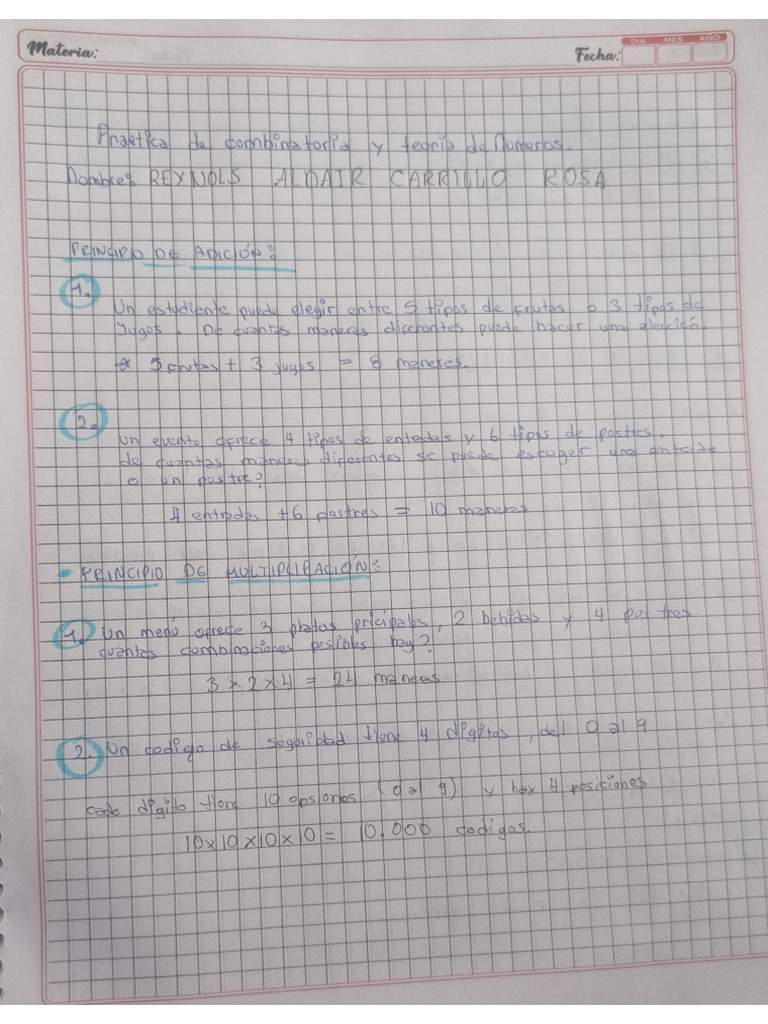 Materia:
Fecha:
DIA MES AÑO
Practica de combinatoria y teoria de Numeros.
Nombres REYNOLS ALDAIR CARRILLO ROSA
PRINCIPIO DE ADICIÓN:
1.
Un estudiante puede elegir entre 5 tipos de frutas o 3 tipos de
Jugos. De cuantas maneras diferentes puede hacer una elección.
5 frutas + 3 jugos = 8 maneras.
2.
Un evento ofrece 4 tipos de entradas y 6 tipos de postres.
de cuantas maneras diferentes se puede escoger una entrada
o un postre?
4 entradas + 6 postres = 10 maneras
- PRINCIPIO DE MULTIPLICACIÓN:
1. Un menú ofrece 3 platos pricipales, 2 bebidas y 4 postres
cuantas combinaciones posibles hay?
3 x 2 x 4 = 24 maneas
2. Un codigo de seguridad tiene 4 digitos, del 0 al 9
cada digito tiene 10 opsiones (0 al 9) y hay 4 posiciones
10 x 10 x 10 x 10 = 10.000 codigos.